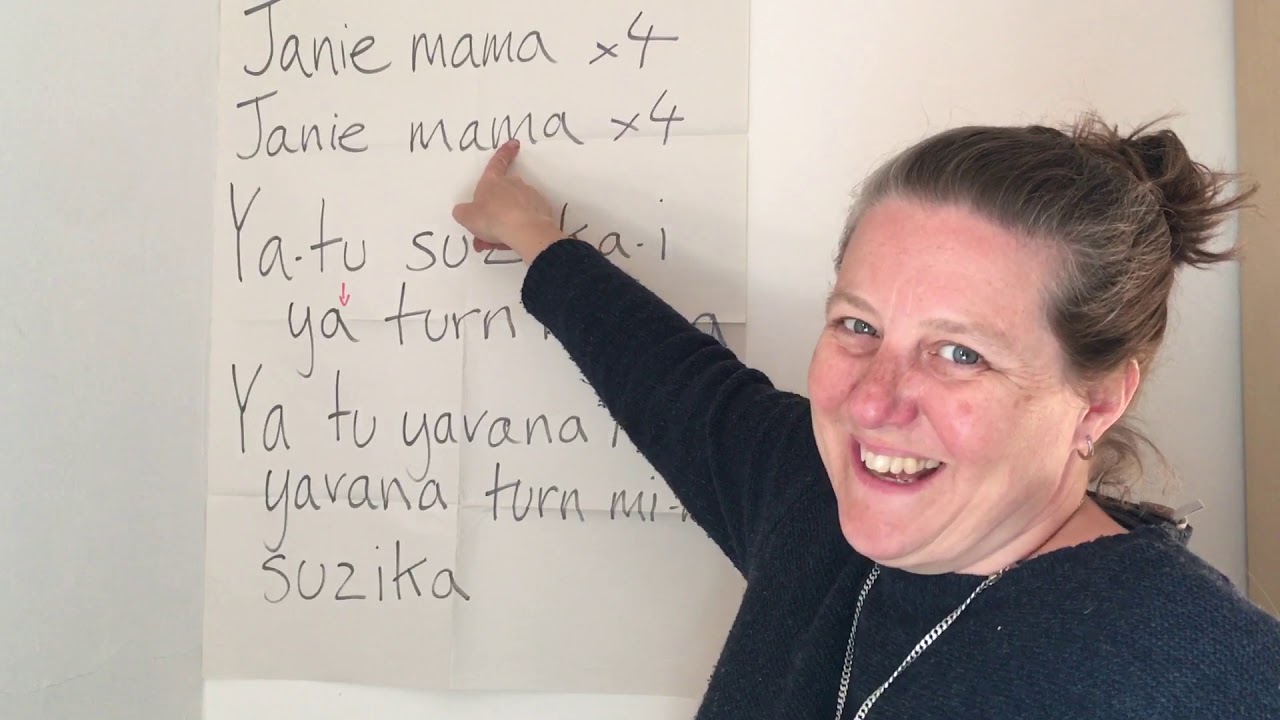 Janie mama x4
Janie mama x4
Ya-tu suzika-i
ya turn
Ya tu yavana
yavana turn
suzika